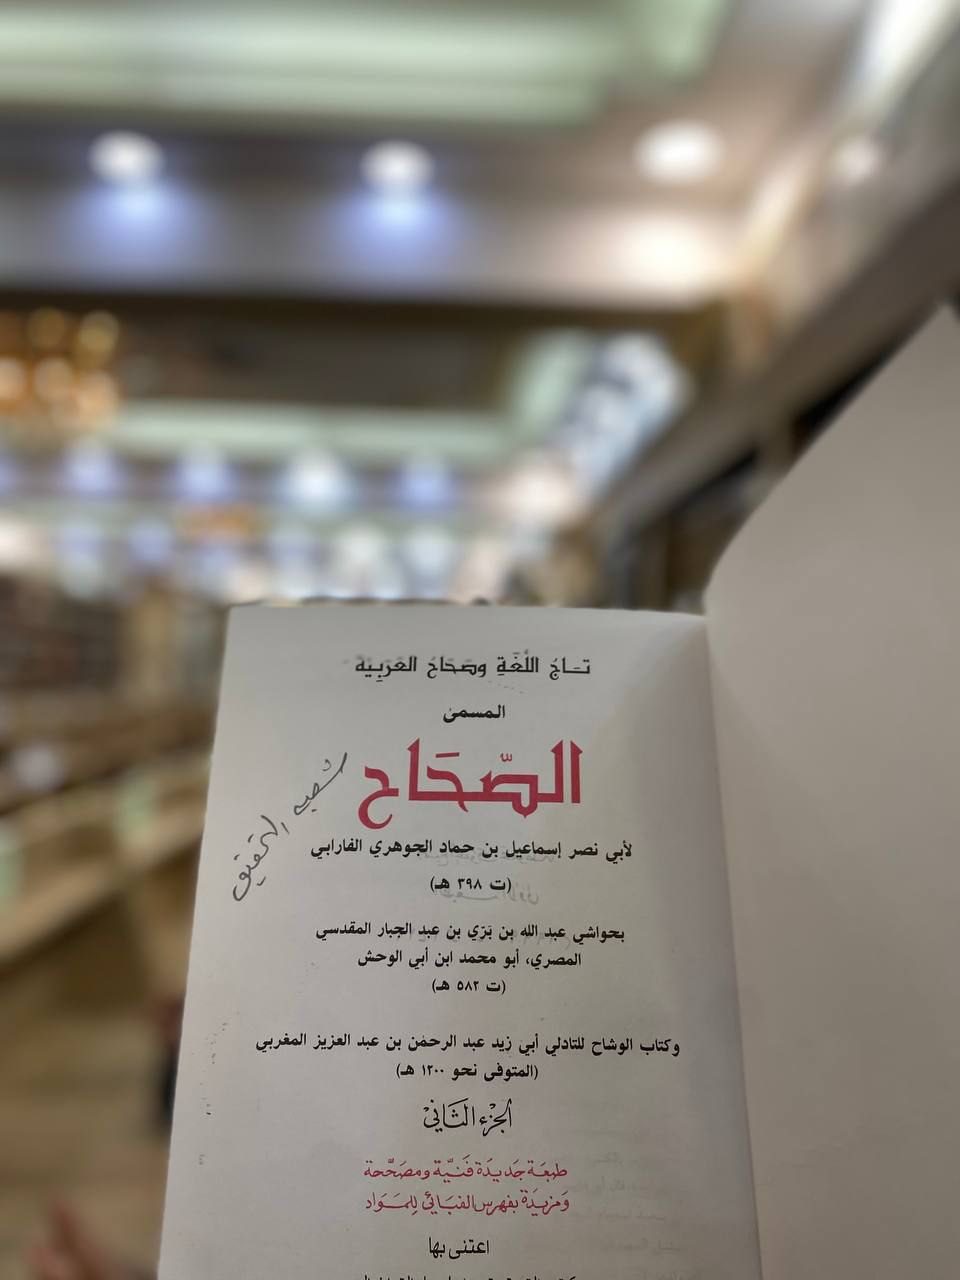 تاجُ اللُّغَةِ وصَحَاحُ العَرَبِيَّة
المسمىٰ
الصّحَاح
شعبه التحقيق
لأبي نصر إسماعيل بن حماد الجوهري الفارابي
(ت ٣٩٨ هـ)
بحواشي عبد الله بن بَرّي بن عبد الجبار المقدسي
المصري، أبو محمد ابن أبي الوحش
(ت ٥٨٢ هـ)
وكتاب الوشاح للتادلي أبي زيد عبد الرحمٰن بن عبد العزيز المغربي
(المتوفى نحو ١٢٠٠ هـ)
الجزء الثاني
طبعَة جَديدَة فَنيّة ومصَحَّحة
وَمزيدَة بفهرس الفبائي لِلمَوَاد
اعتنى بها